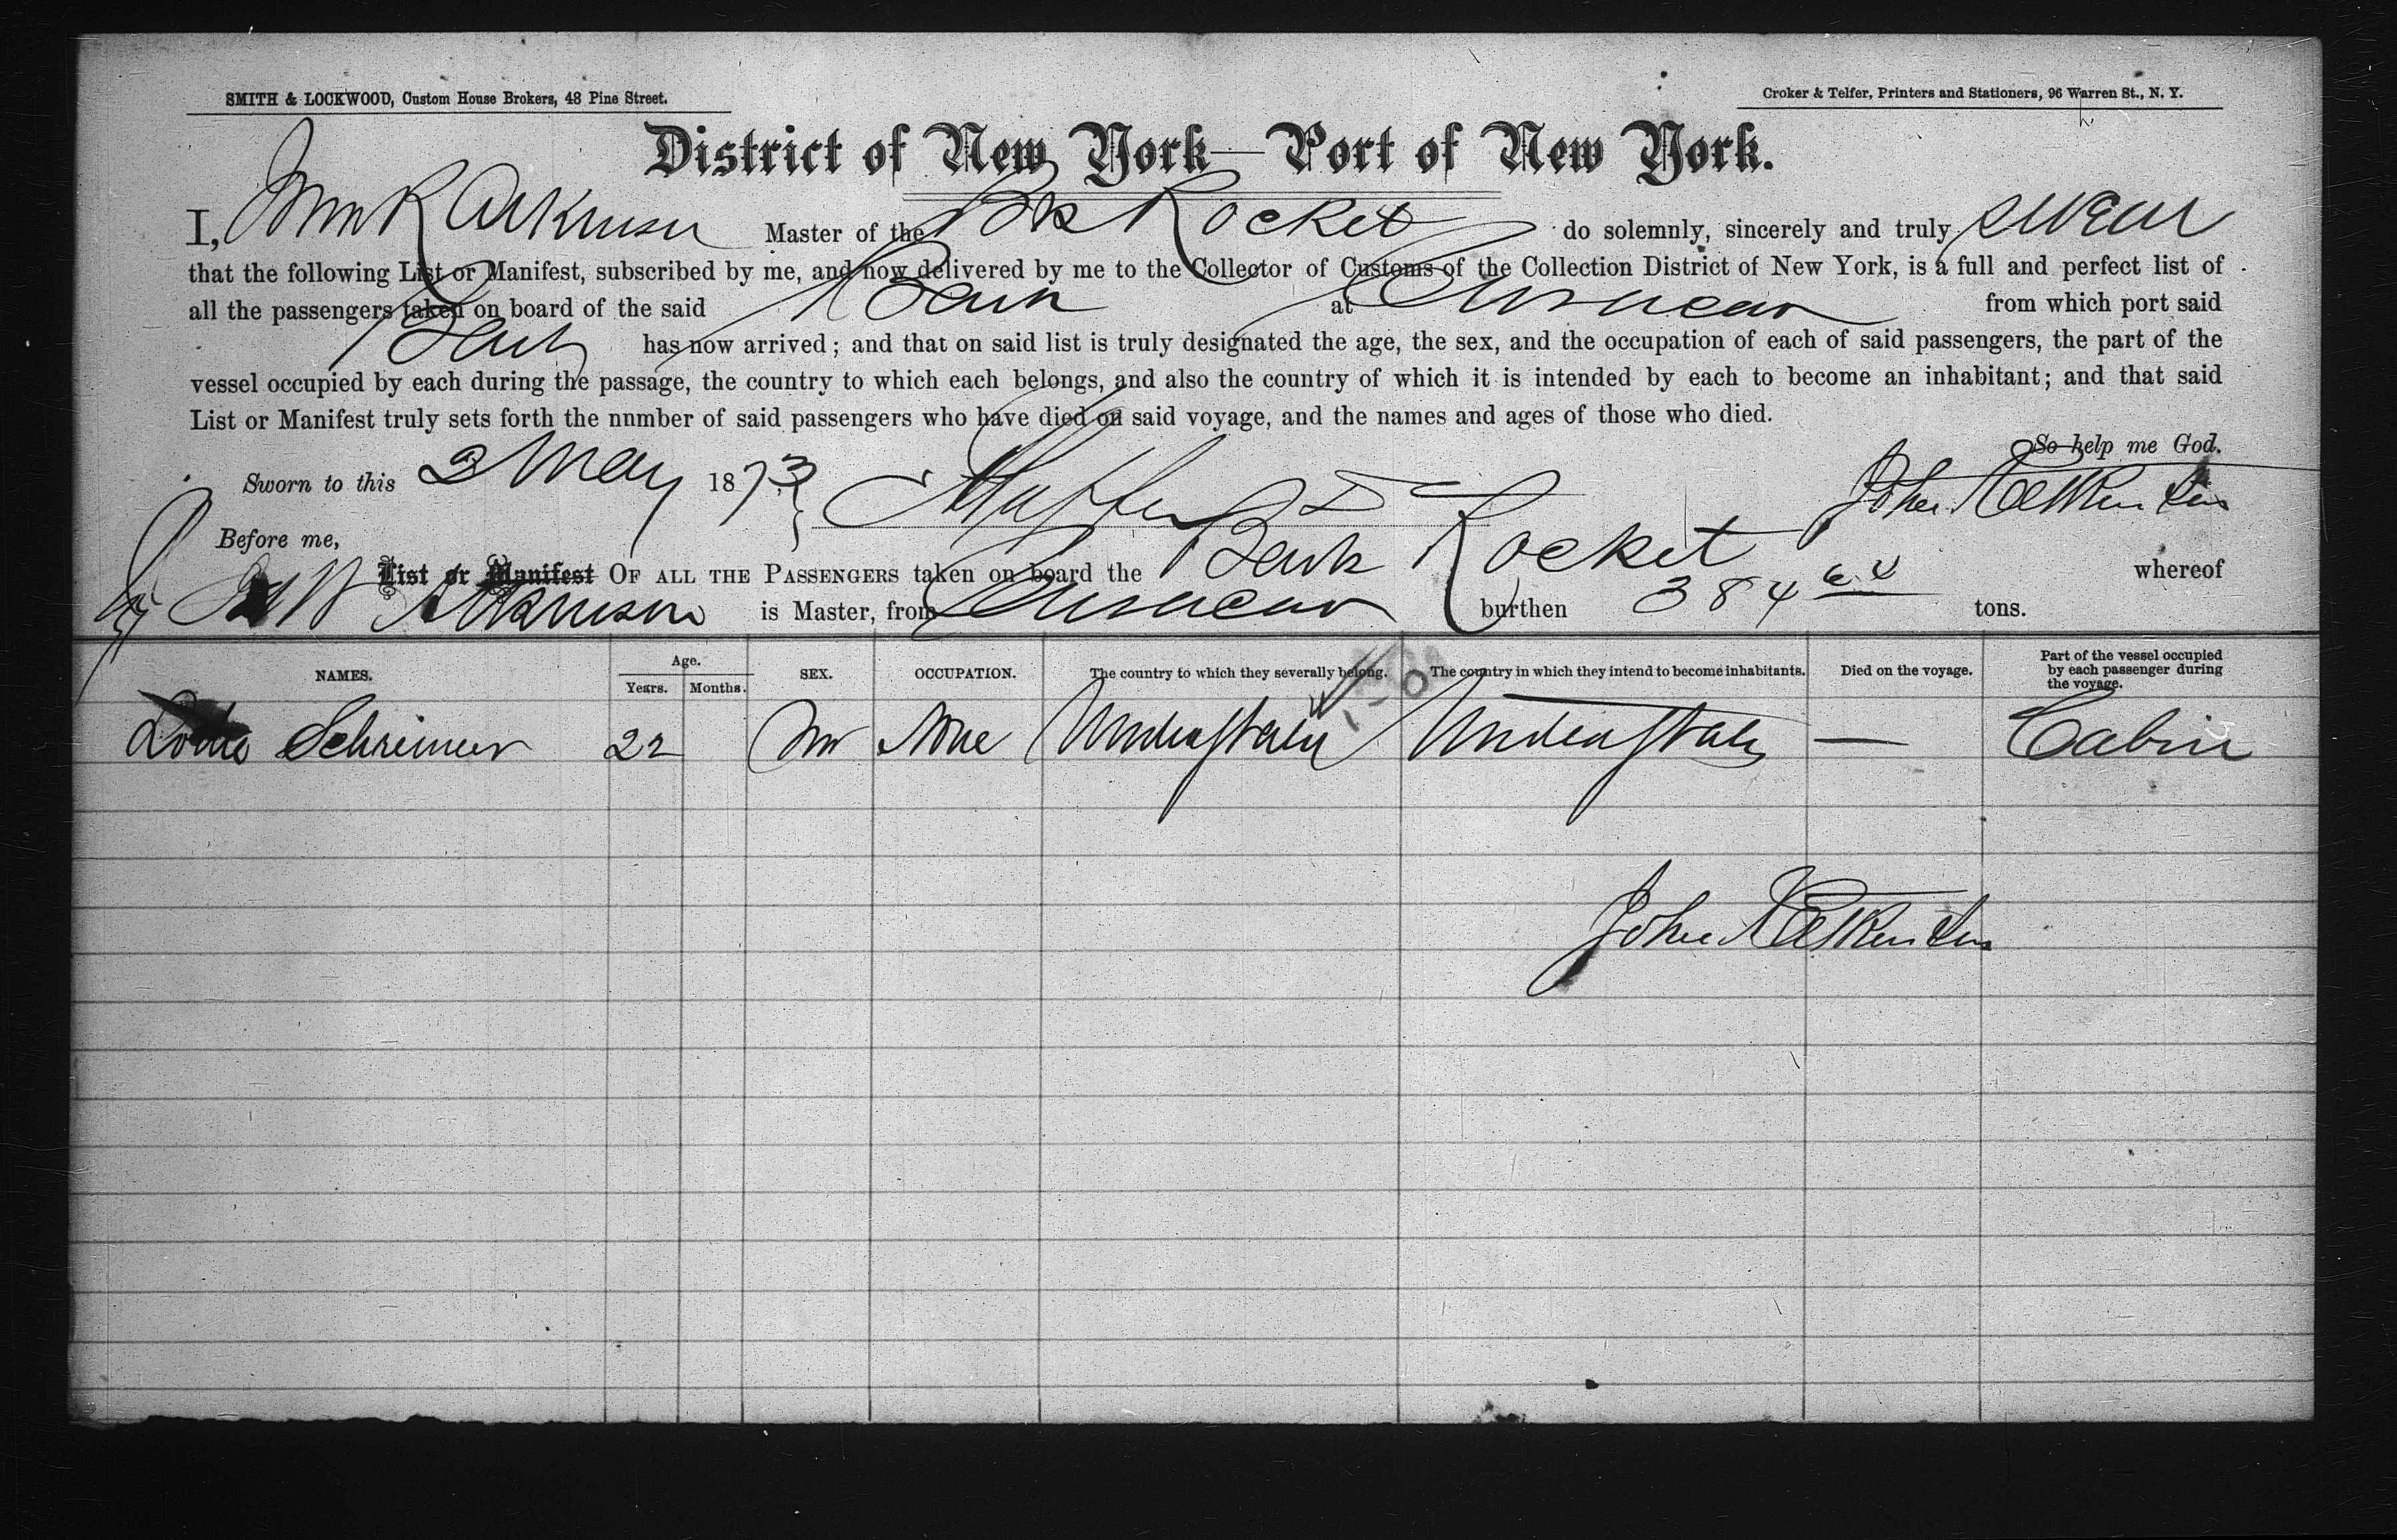 SMITH & LOCKWOOD, Custom House Brokers, 48 Pine Street.
Croker & Telfer, Printers and Stationers, 96 Warren St., N. Y.
District of New York—Port of New York.
I, Atkinson Master of the Bk Rocket do solemnly, sincerely and truly swear
that the following List or Manifest, subscribed by me, and now delivered by me to the Collector of Customs of the Collection District of New York, is a full and perfect list of
all the passengers taken on board of the said Bark at Curacao from which port said
Bark has now arrived; and that on said list is truly designated the age, the sex, and the occupation of each of said passengers, the part of the
vessel occupied by each during the passage, the country to which each belongs, and also the country of which it is intended by each to become an inhabitant; and that said
List or Manifest truly sets forth the nnmber of said passengers who have died on said voyage, and the names and ages of those who died.
So help me God.
Sworn to this 2 May 1873 John
Before me,
List or Manifest OF ALL THE PASSENGERS taken on board the Bark Rocket whereof
Atkinson is Master, from Curacao burthen 384 64 tons.
NAMES. Age. Years. Months. SEX. OCCUPATION. The country to which they severally belong. The country in which they intend to become inhabitants. Died on the voyage. Part of the vessel occupied by each passenger during the voyage.
Schreiner 22 M None United States United States — Cabin
John